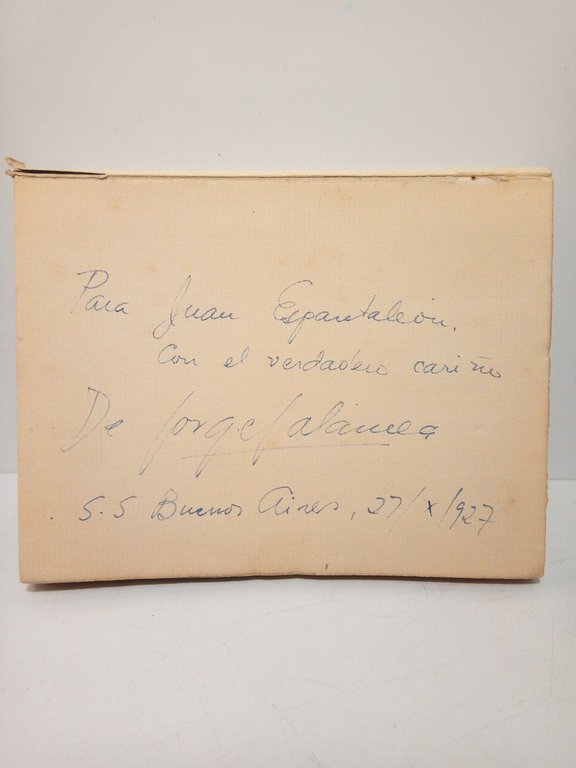 Para Juan Espantaleón.
Con el verdadero cariño
De Jorge Zalamea
S.S Buenos Aires, 27/X/927